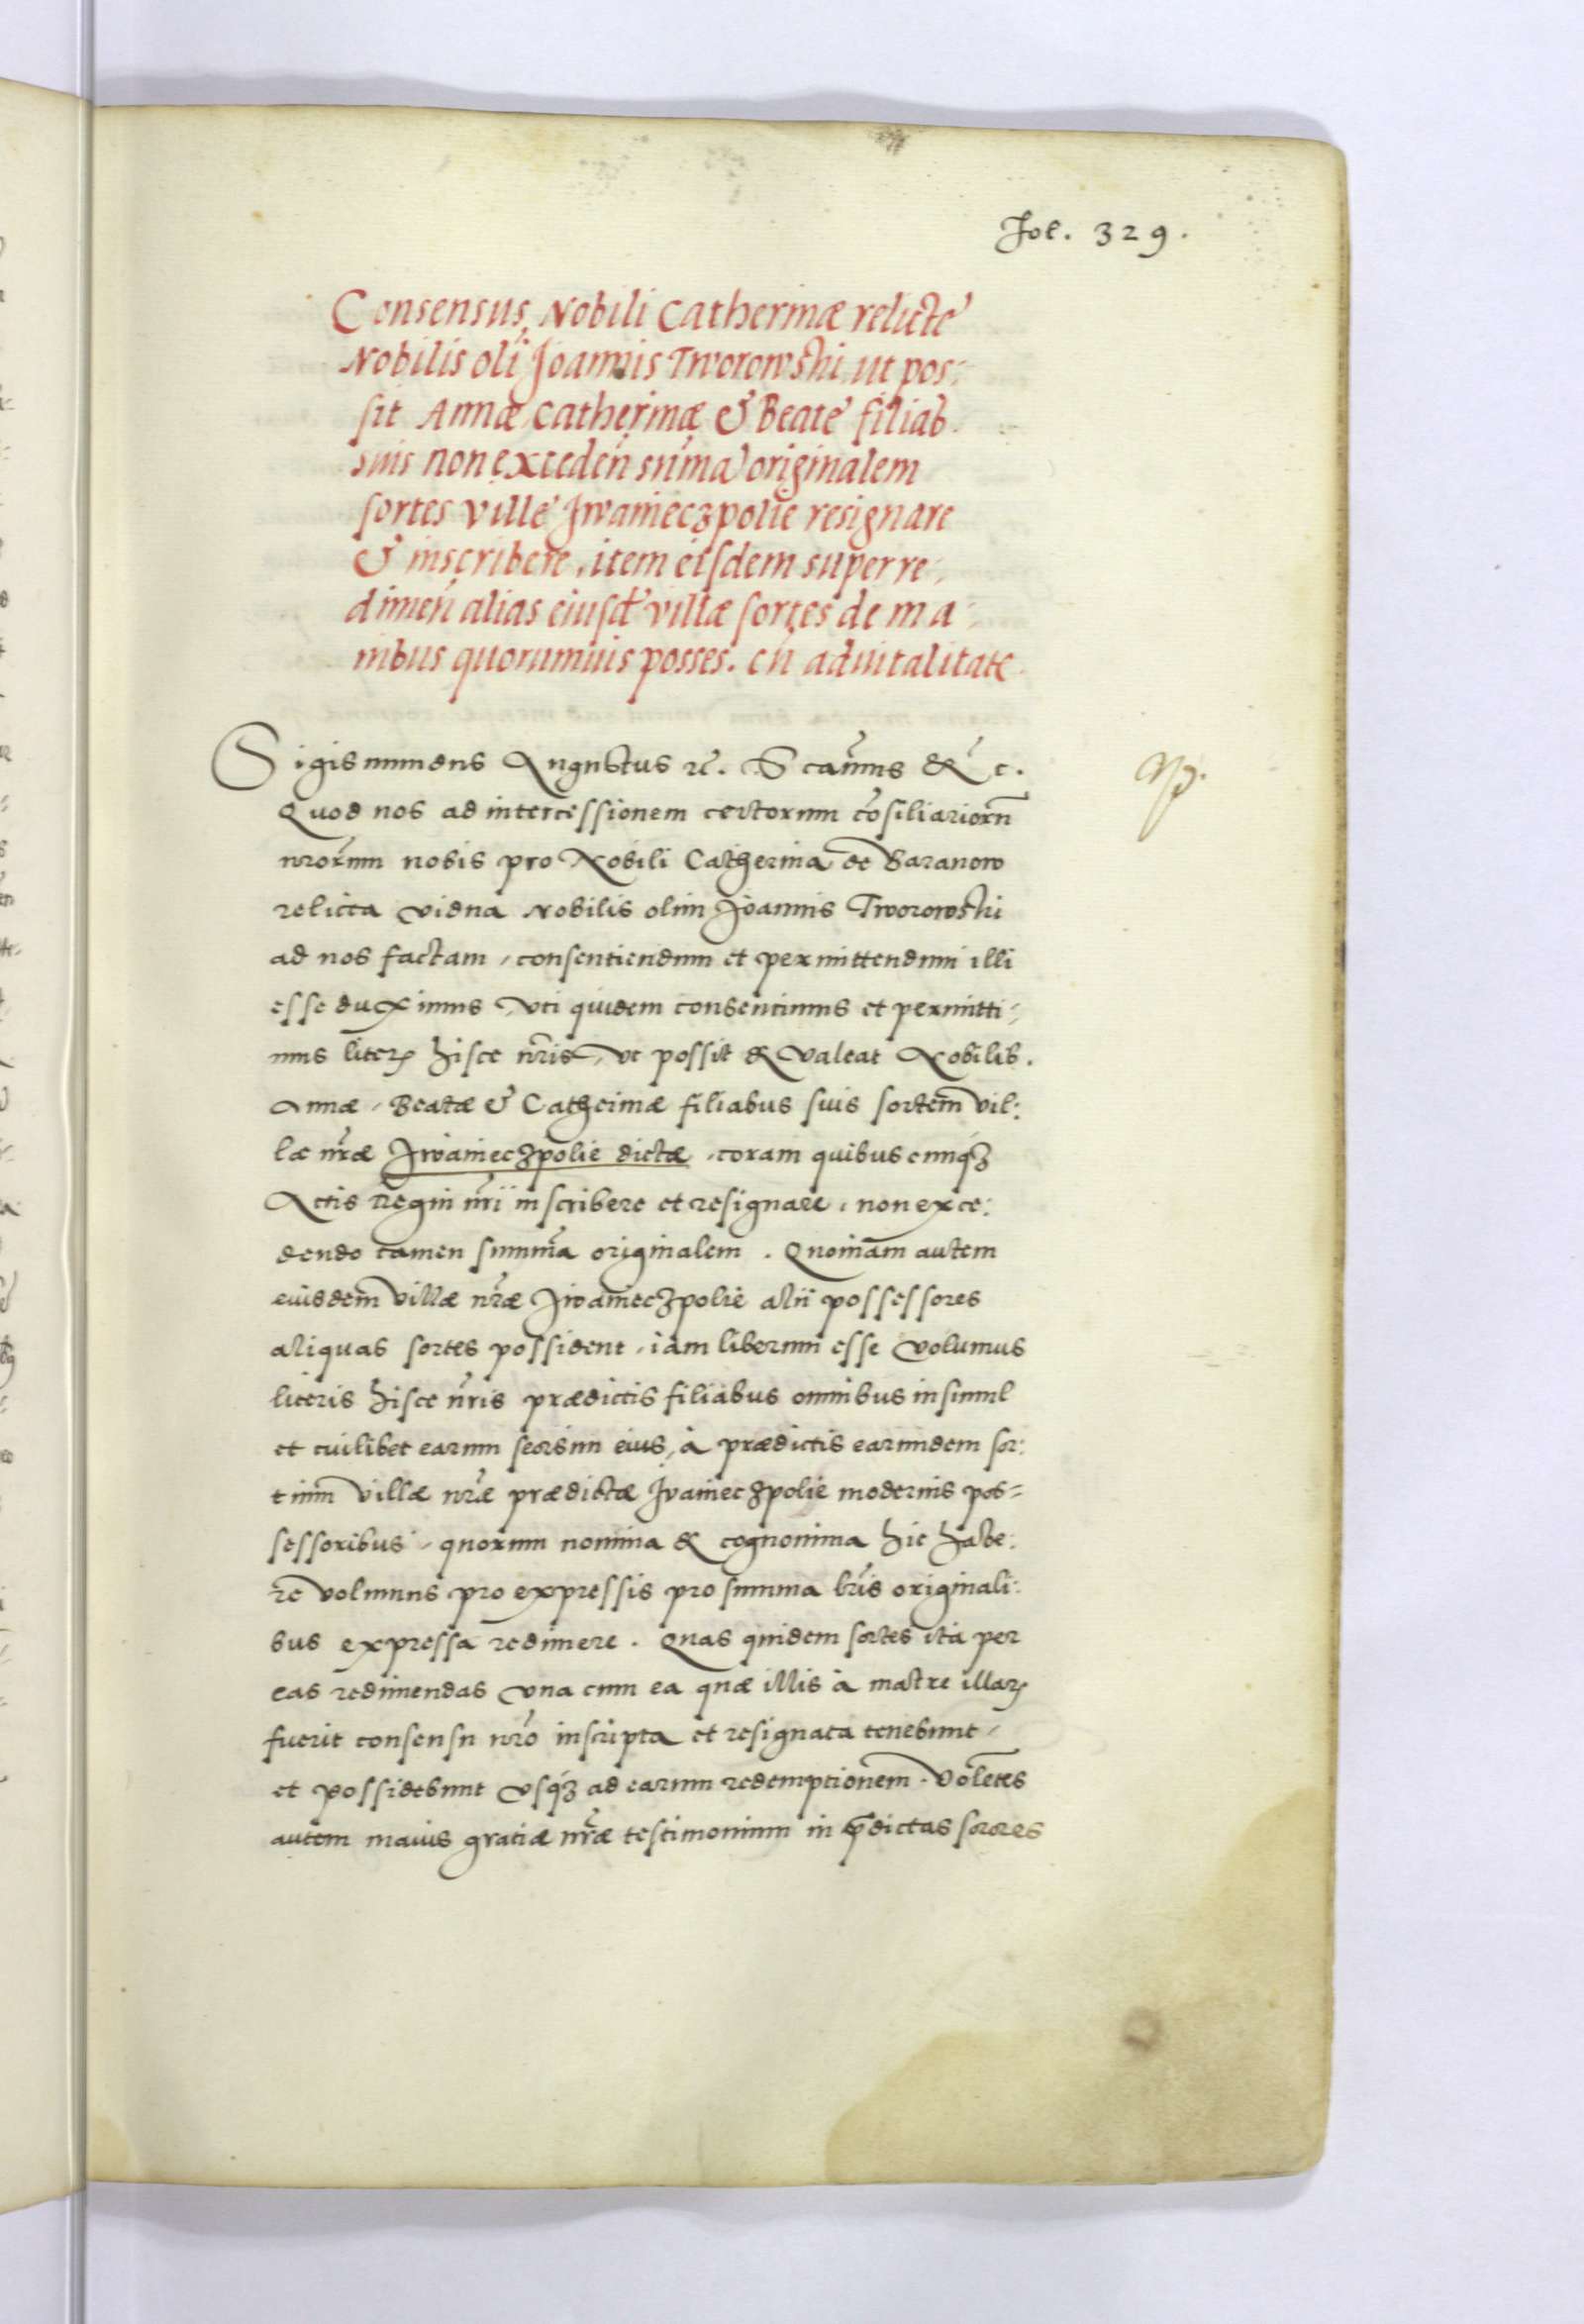 Fol. 329.
Consensus Nobili Catherinæ relicte
Nobilis oli Joannis Tworowski ut pos:
sit Annæ Catherinæ & Beate filiab.
suis non exceden suma originalem
sortes ville Jwanieczpolie resignare
& inscribere, item eisdem super re,
dimen alias eiusd villæ sortes de ma:
nibus quorumuis posses. cu aduitalitate.
Sigismundus Augustus rē. S caums & c.
Quod nos ad intercessionem certorum cōsiliariorū
nrorum nobis pro Nobili Catherina de Baranow
relicta vidua Nobilis olim Joannis Tworowski
ad nos factam, consentiendum et permittendum illi
esse duximus, vti quidem consentimus et permitti,
mus literꝝ hisce nris, vt possit & valeat Nobilib.
Annæ, Beatæ & Catherinæ filiabus suis sortem vil:
læ nræ Jwanieczpolie dictæ, coram quibuscunqꝫ
Actis Regni nri inscribere et resignare, non exce:
dendo tamen summa originalem. Quoniam autem
eiusdem villæ nræ Jwanieczpolie alii possessores
aliquas sortes possident, iam liberum esse volumus
literis hisce nris prædictis filiabus omnibus insimul
et cuilibet earum seorsim eius, à prædictis earundem sor:
tium villæ nræ prædictæ Jvanieczpolie modernis pos=
sessoribus, quorum nomina & cognomina hic habe:
re volumus pro expressis pro summa lris originali:
bus expressa redimere. Quas quidem sortes ita per
eas redimendas vna cum ea quæ illis à matre illarꝝ
fuerit consensu nro inscripta et resignata tenebunt,
et possidebunt vsqꝫ ad earum redemptionem. Volētes
autem maius gratiæ nræ testimonium in p̄dictas sorores